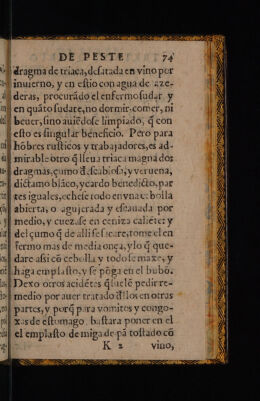 DE PESTE 74
dragma de triaca, desatada en vino por
inuierno, y en estio con agua de aze-
deras, procurãdo el enfermo sudar, y
en quãto sudare, no dormir, comer, ni
beuer, sino auiẽdose limpiado, q̃ con
esto es singular beneficio. Pero para
hõbres rusticos y trabajadores, es ad-
mirable otro q̃ lleua triaca magna dos
dragmas, çumo d̃ scabiosa, y veruena,
dictamo blãco, y cardo benedicto, par
tes iguales, echese todo en vna cebolla
abierta, o agujerada y escauada por
medio, y cuezase en ceniza caliẽte: y
del çumo q̃ de alli se sacare, tome el en
fermo mas de media onça, y lo q̃ que-
dare assi cõ cebolla y todo se maxe, y
haga emplasto, y se põga en el bubõ.
Dexo otros acidẽtes q̃ suelẽ pedir re-
medio por auer tratado d̃llos en otras
partes, y porq̃ para vomitos y congo-
xas de estomago bastara poner en el
el emplasto de miga de pã tostado cõ
K 2 vino,